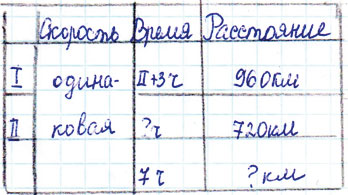 Скорость Время Расстояние
I одина- II+3ч 960км
II ковая ?ч 720км
7ч ?км